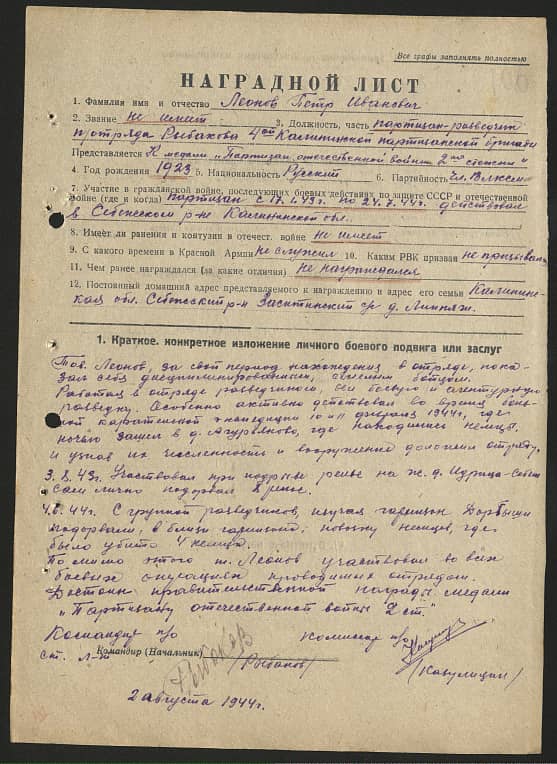 Все графы заполнять полностью
НАГРАДНОЙ ЛИСТ
1. Фамилия имя и отчество Леонов Петр Иванович
2. Звание не имеет 3. Должность, часть партизан-разведчик
п/отряда Рыбакова 4ой Калининской партизанской бригады
Представляется К медали "Партизан отечественной войны 2ой степени"
4. Год рождения 1923 5. Национальность Русский 6. Партийность чл. ВЛКСМ
7. Участие в гражданской войне, последующих боевых действиях по защите СССР и отечественной
войне (где и когда) партизан с 17.1.43г. по 24.7.44г. действовал
в Себежском р-не Калининской обл.
8. Имеет ли ранения и контузии в отечест. войне не имеет
9. С какого времени в Красной Армии не служил 10. Каким РВК призван не призывал
11. Чем ранее награждался (за какие отличия) не награждался
12. Постоянный домашний адрес представляемого к награждению и адрес его семьи Калинин-
ская обл. Себежский р-н Заситинский с/с д.
1. Краткое, конкретное изложение личного боевого подвига или заслуг
Тов. Леонов, за свой период нахождения в отряде, пока-
зал себя дисциплинированным, смелым бойцом.
Работал в отряде разведчиком, вел боевую и агентурную
разведку. Особенно активно действовал во время
карательной экспедиции 10 и 11 февраля 1944г., где
ночью зашел в д. где находились немцы
и узнав их численность и вооружение доложил отряду.
3.8.43г. Участвовал при подрыве рельс на ж.д. Идрица-Себеж
сам лично подорвал рельс.
44г. С группой разведчиков, изучая гарнизон
подорвали в близи гарнизона повозку немцев, где
было убито 4 немца.
Помимо этого т. Леонов участвовал во всех
боевых операциях проводимых отрядом.
Достоин правительственной награды медали
"Партизану отечественной войны 2 ст."
Командир п/о Комиссар п/о
ст. л-т Командир (Начальник) /Рыбаков/
2 августа 1944г.